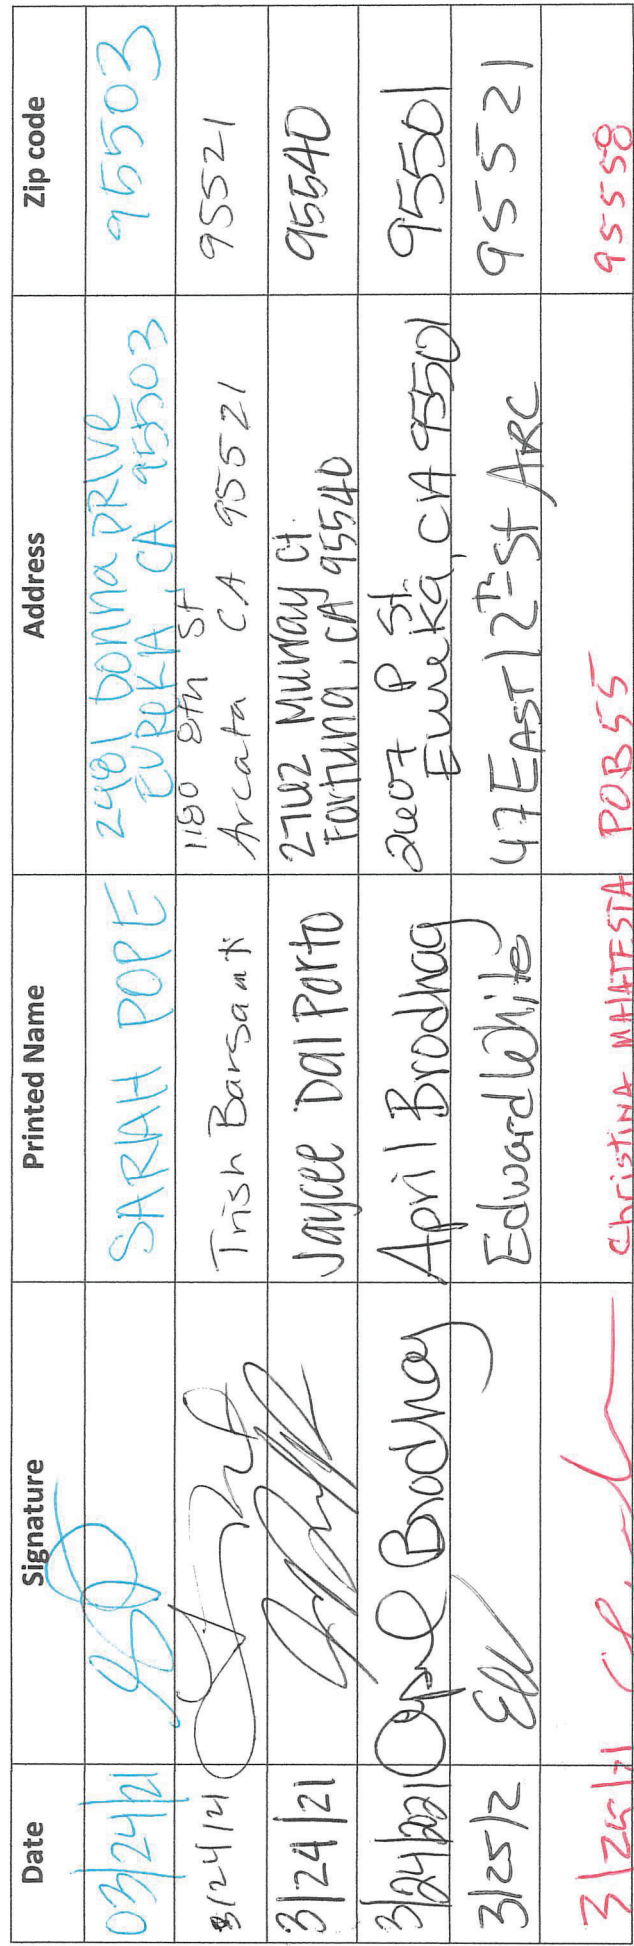 Date Signature Printed Name Address Zip code
03/24/21 SARAH POPE 2481 DONNA DRIVE 95503
EUREKA, CA 95503
3/24/21 Trish Barsanti 1180 8th St 95521
Arcata CA 95521
3/24/21 Jaycee Dal Porto 2762 Murray Ct. 95540
Fortuna, CA 95540
3/24/2021 April Brodhag April Brodhag 2607 P St. 95501
Eureka, CA 95501
3/25/2 Edward White 47 EAST 12TH St ARC 95521
3/25/21 Christina MALATESTA POB 55 95558